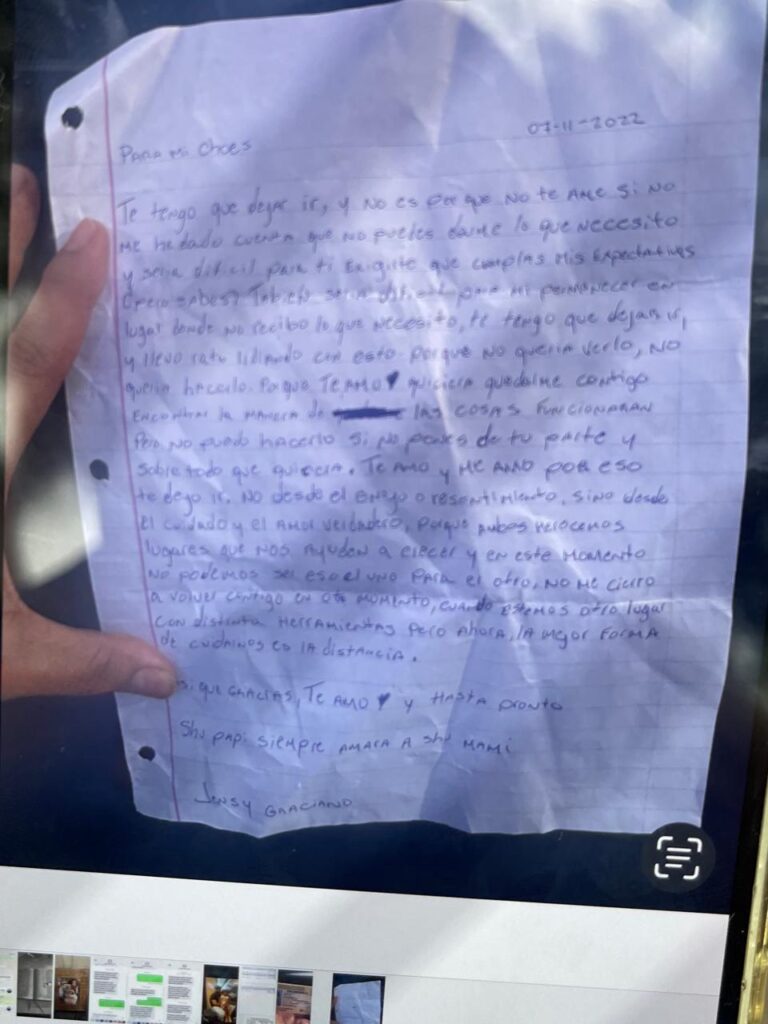 07-11-2022
Para mi Choes
Te tengo que dejar ir, y no es por que no te ame si no
me he dado cuenta que no puedes darme lo que necesito
y seria dificil para ti exigirte que cumplas mis expectativas
(pero sabes? Tambien seria dificil para mi permanecer en
lugar donde no recibo lo que necesito, te tengo que dejar ir,
y llevo rato lidiando con esto porque no queria verlo, no
queria hacerlo. Porque TE AMO quisiera quedarme contigo
encontrar la manera de las cosas funcionaran
pero no puedo hacerlo si no pones de tu parte y
sobre todo que quisiera. Te amo y me amo por eso
te dejo ir. No desde el enojo o resentimiento, sino desde
el cuidado y el amor verdadero, porque ambos merecemos
lugares que nos ayuden a crecer y en este momento
no podemos ser eso el uno para el otro, no me cierro
a volver contigo en otro momento, cuando estemos otro lugar
con distinta herramientas pero ahora, la mejor forma
de cuidarnos es la distancia.
si que gracias, Te amo y hasta pronto
Shu papi siempre amara a shu mami
Jensy Graciano